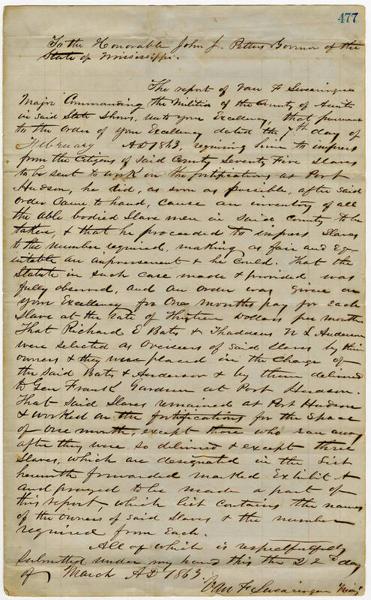 477
To the Honorable John J. Pettus Governor of the
State of Mississippi.
The report of Van F Swearingen
Major Commanding the Militia of the County of Amite
in said State Shows unto your Excellency, that pursuant
to the Order of your Excellency dated the 7th day of
February AD 1863, requiring him to impress
from the Citizens of said County Seventy Five Slaves
to be sent to work on the fortifications at Port
Hudson, he did, as soon as possible, after said
order came to hand, cause an inventory of all
the able bodied Slave men in said County to be
taken, & that he proceeded to impress Slaves
to the number required, making as fair and Eq-
uitable an as he could. That the
Statute in such case made & provided was
fully observed, and an order was given on
your Excellency for One months pay for each
Slave at the Rate of Dollars per month
That Richard E Bates & Thaddeus Anderson
were selected as Overseers of said Slaves by their
owners & they were placed in the Charge of
the said Bates & Anderson & by them delivered
to Gen Frank Gardner at Port Hudson.
That said Slaves remained at Port Hudson
& worked on the fortifications for the space
of one month, except those who ran away
after they were so delivered & except three
Slaves, which are designated in the List
herewith forwarded marked Exhibit A
and prayed to be made a part of
this report, which list contains the names
of the owners of said Slaves & the number
required from each.
All of which is respectfully
submitted under my hand this the 22nd day
of March AD 1863.
Van F Swearingen Maj